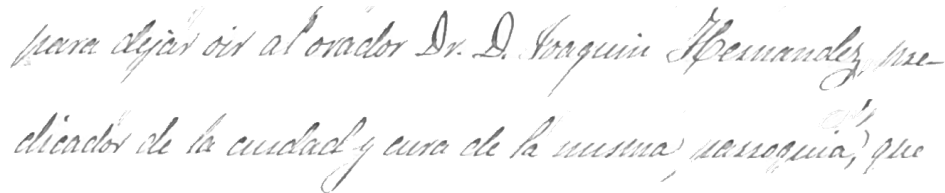 para dejar oir al orador Dr. D. Joaquin Hernandez, pre-
dicador de la ciudad y cura de la misma parroquia, que